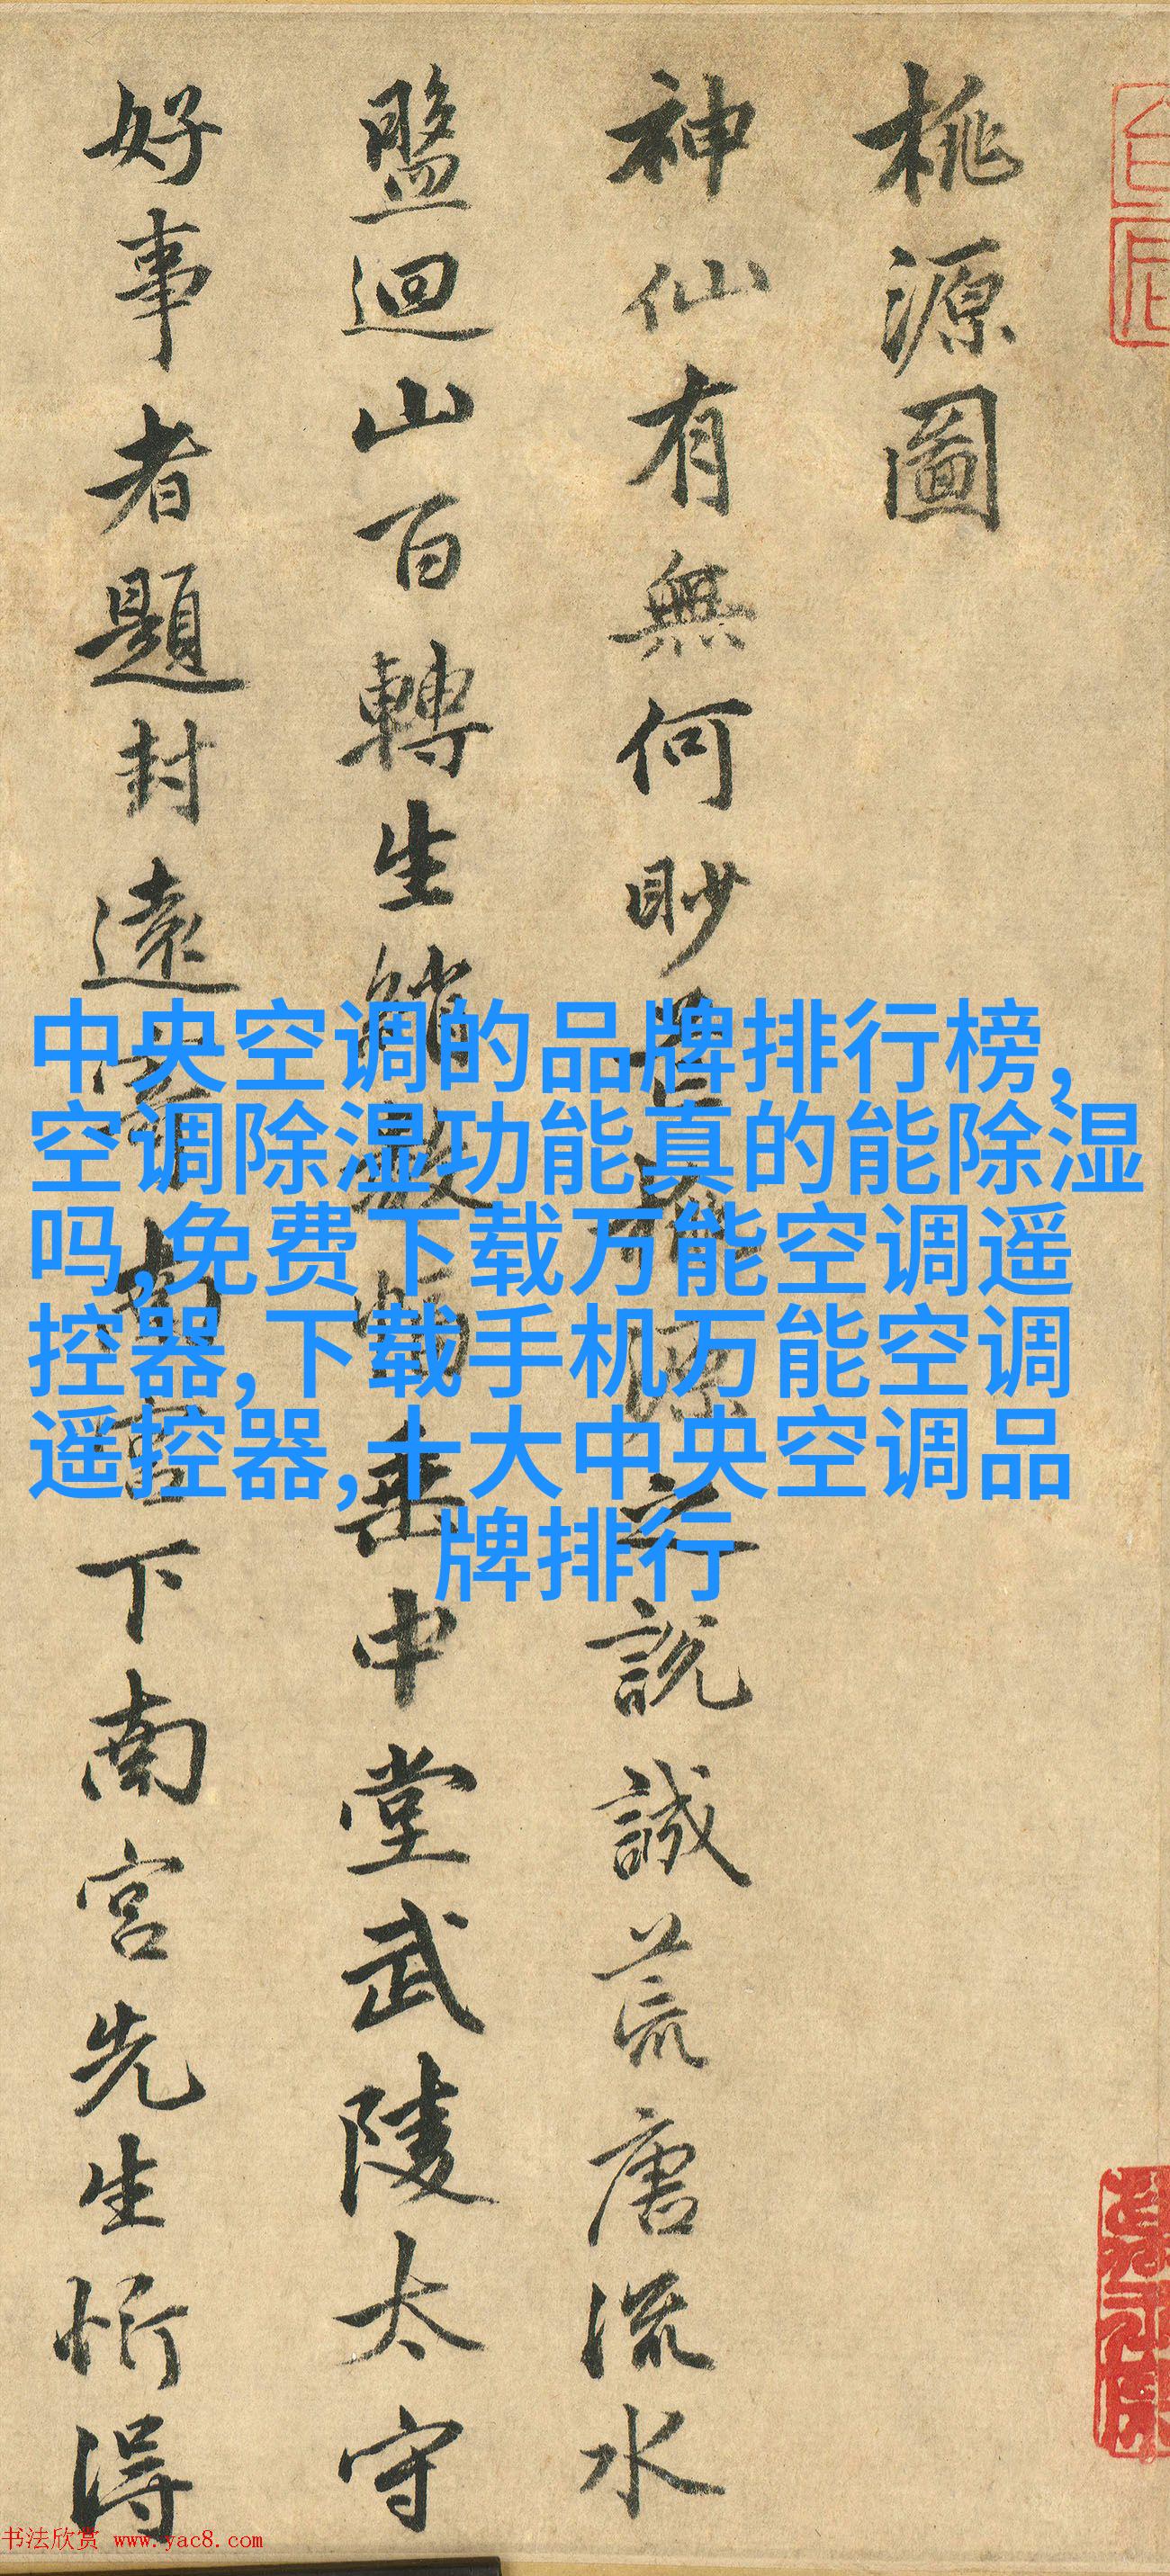 桃源圖
神仙有無何眇芒桃源之說誠荒唐流水
盤迴山百轉生綃數幅垂中堂武陵太守
好事者題封遠寄南宮下南宮先生忻得
中央空调的品牌排行榜,
空调除湿功能真的能除湿
吗,免费下载万能空调遥
控器,下载手机万能空调
遥控器,十大中央空调品
牌排行
书法欣赏 www.yac8.com